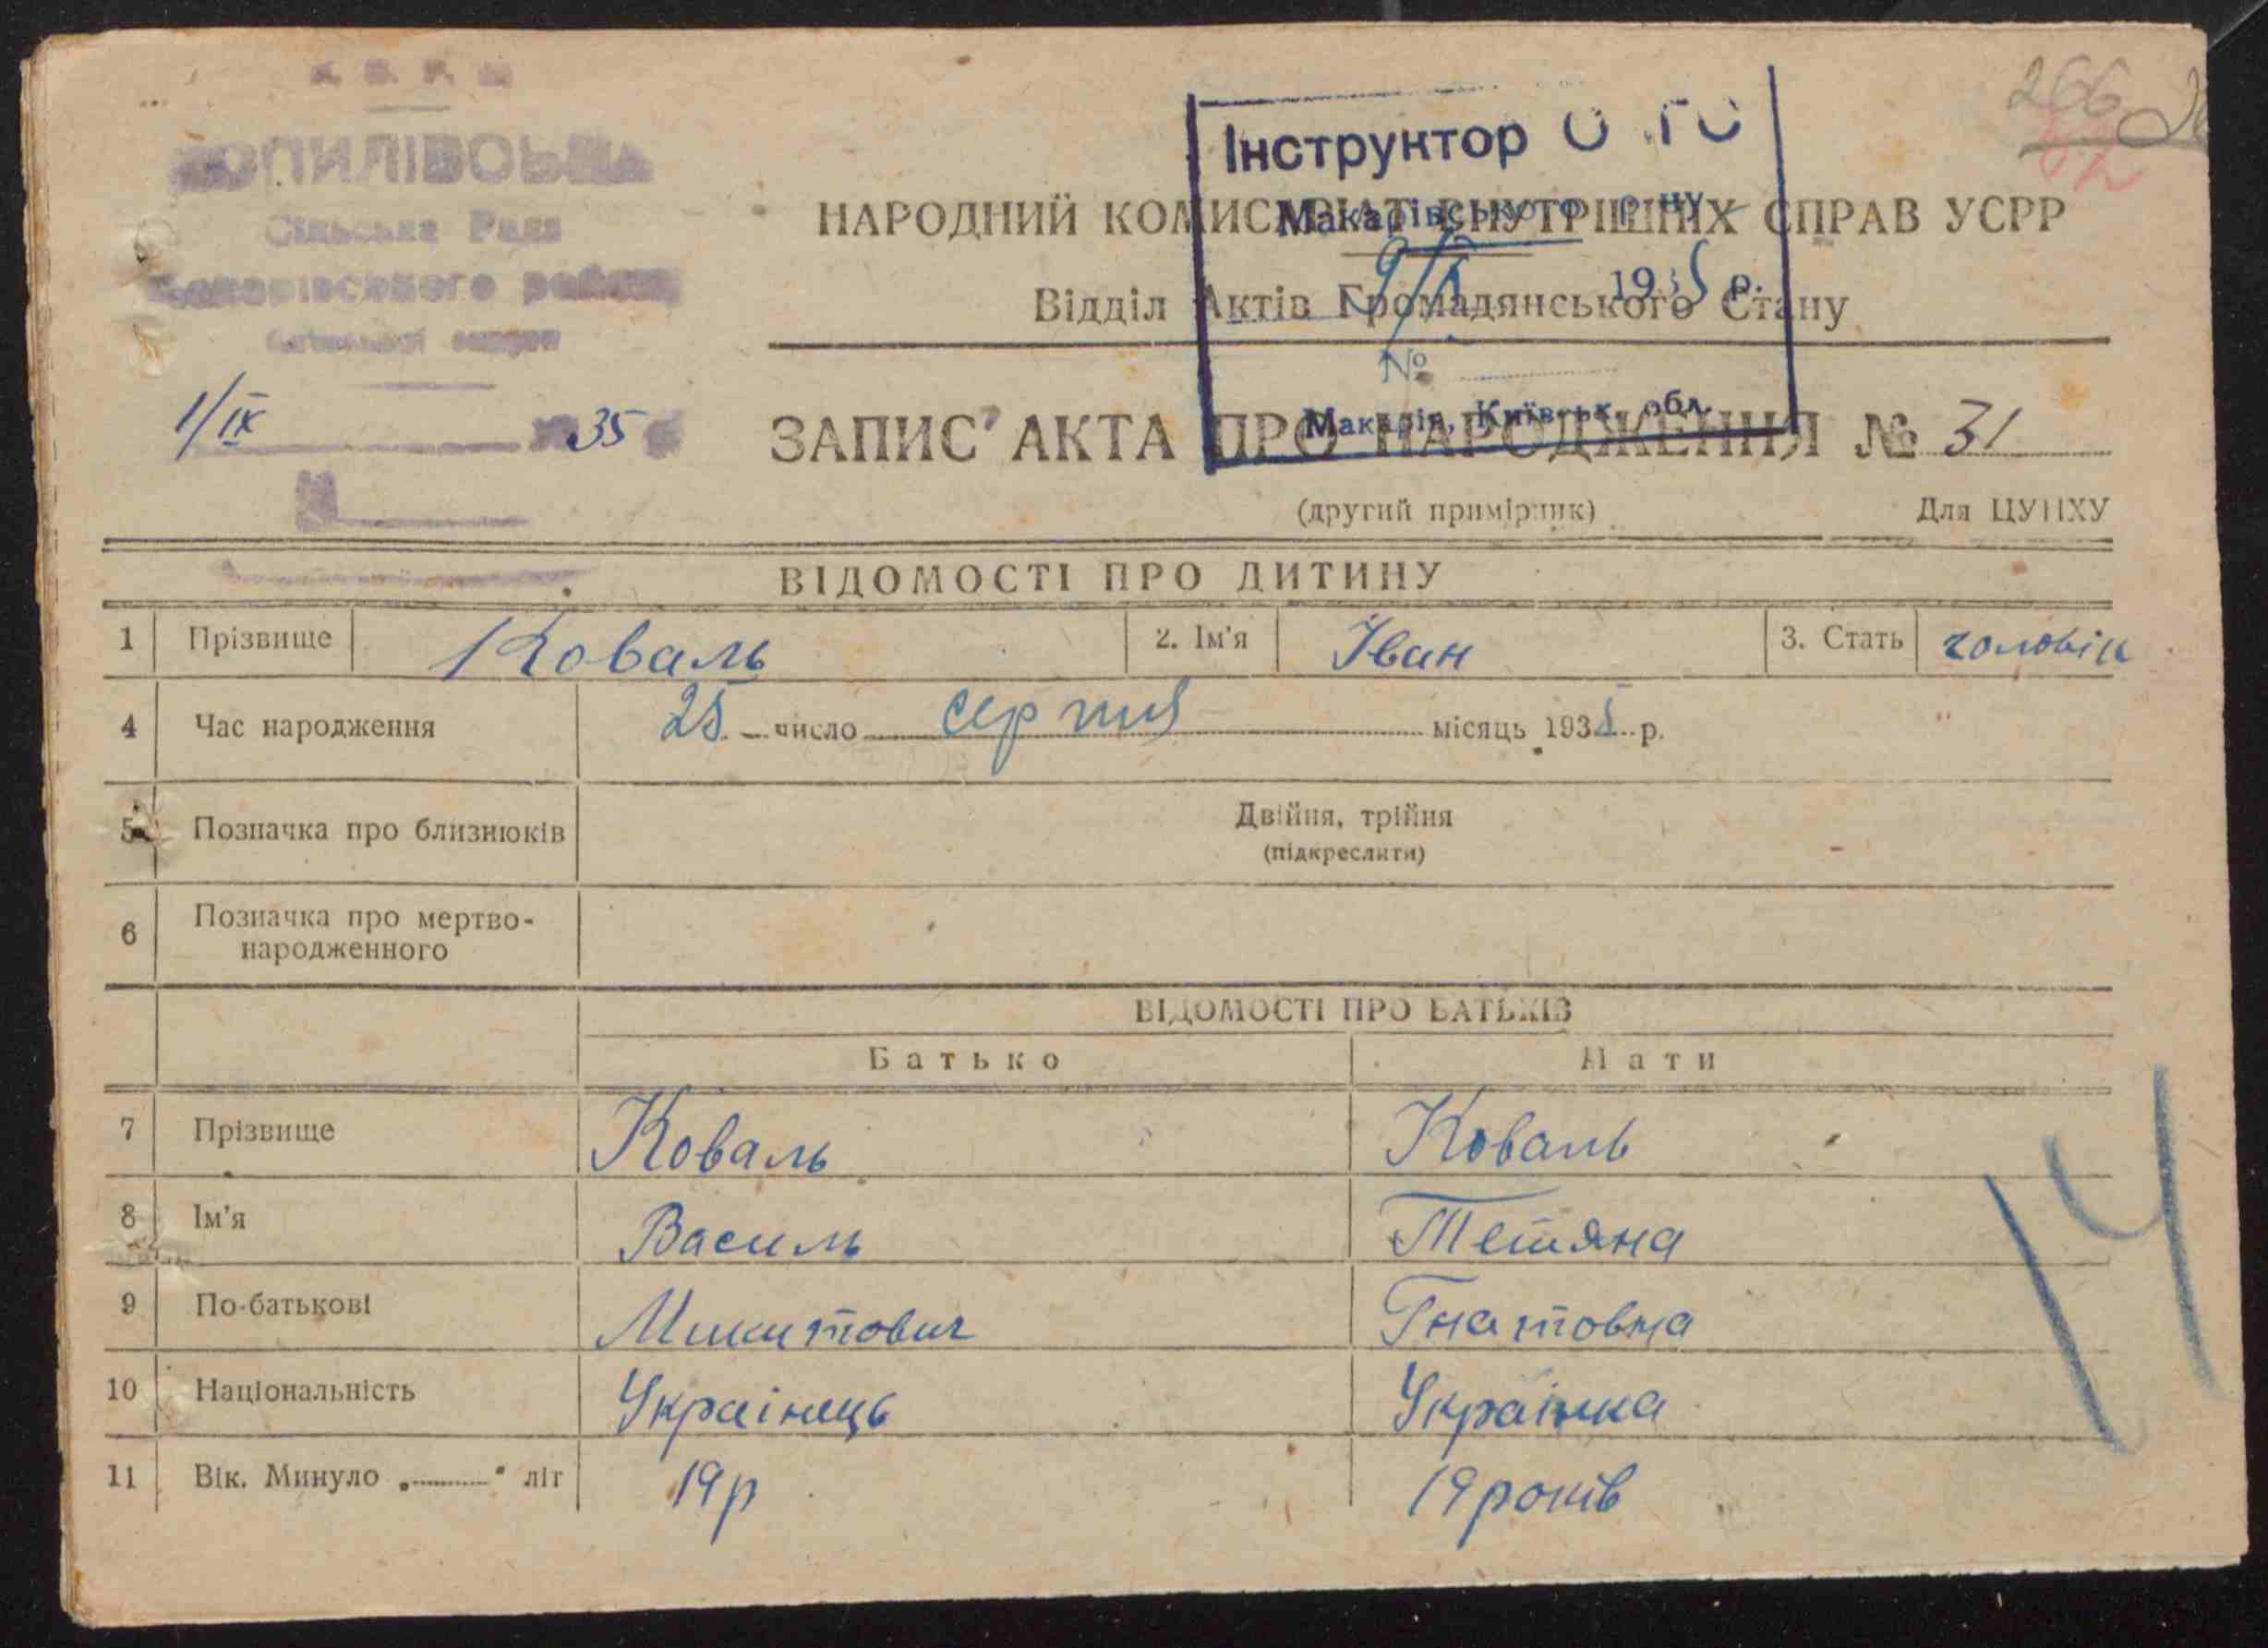 КОПИЛІВСЬКА
Сільська Рада
Макарівського району
1/IX 1935
Інструктор
Макарівського р-ну
9/X 1935 р.
№
Макарів, Київськ. обл.
266
НАРОДНИЙ КОМИСАРІАТ ВНУТРІШНІХ СПРАВ УСРР
Відділ Актів Громадянського Стану
ЗАПИС АКТА ПРО НАРОДЖЕННЯ № 31
(другий примірник) Для ЦУНХУ
ВІДОМОСТІ ПРО ДИТИНУ
1 Прізвище Коваль 2. Ім'я Іван 3. Стать чоловік
4 Час народження 25 число серпня місяць 1935 р.
5 Позначка про близнюків Двійня, трійня
(підкреслити)
6 Позначка про мертво-
народженного
ВІДОМОСТІ ПРО БАТЬКІВ
Батько Мати
7 Прізвище Коваль Коваль
8 Ім'я Василь Тетяна
9 По-батькові Микитович Гнатовна
10 Національність Украінець Украінка
11 Вік. Минуло „ " літ 19р 19 років
14